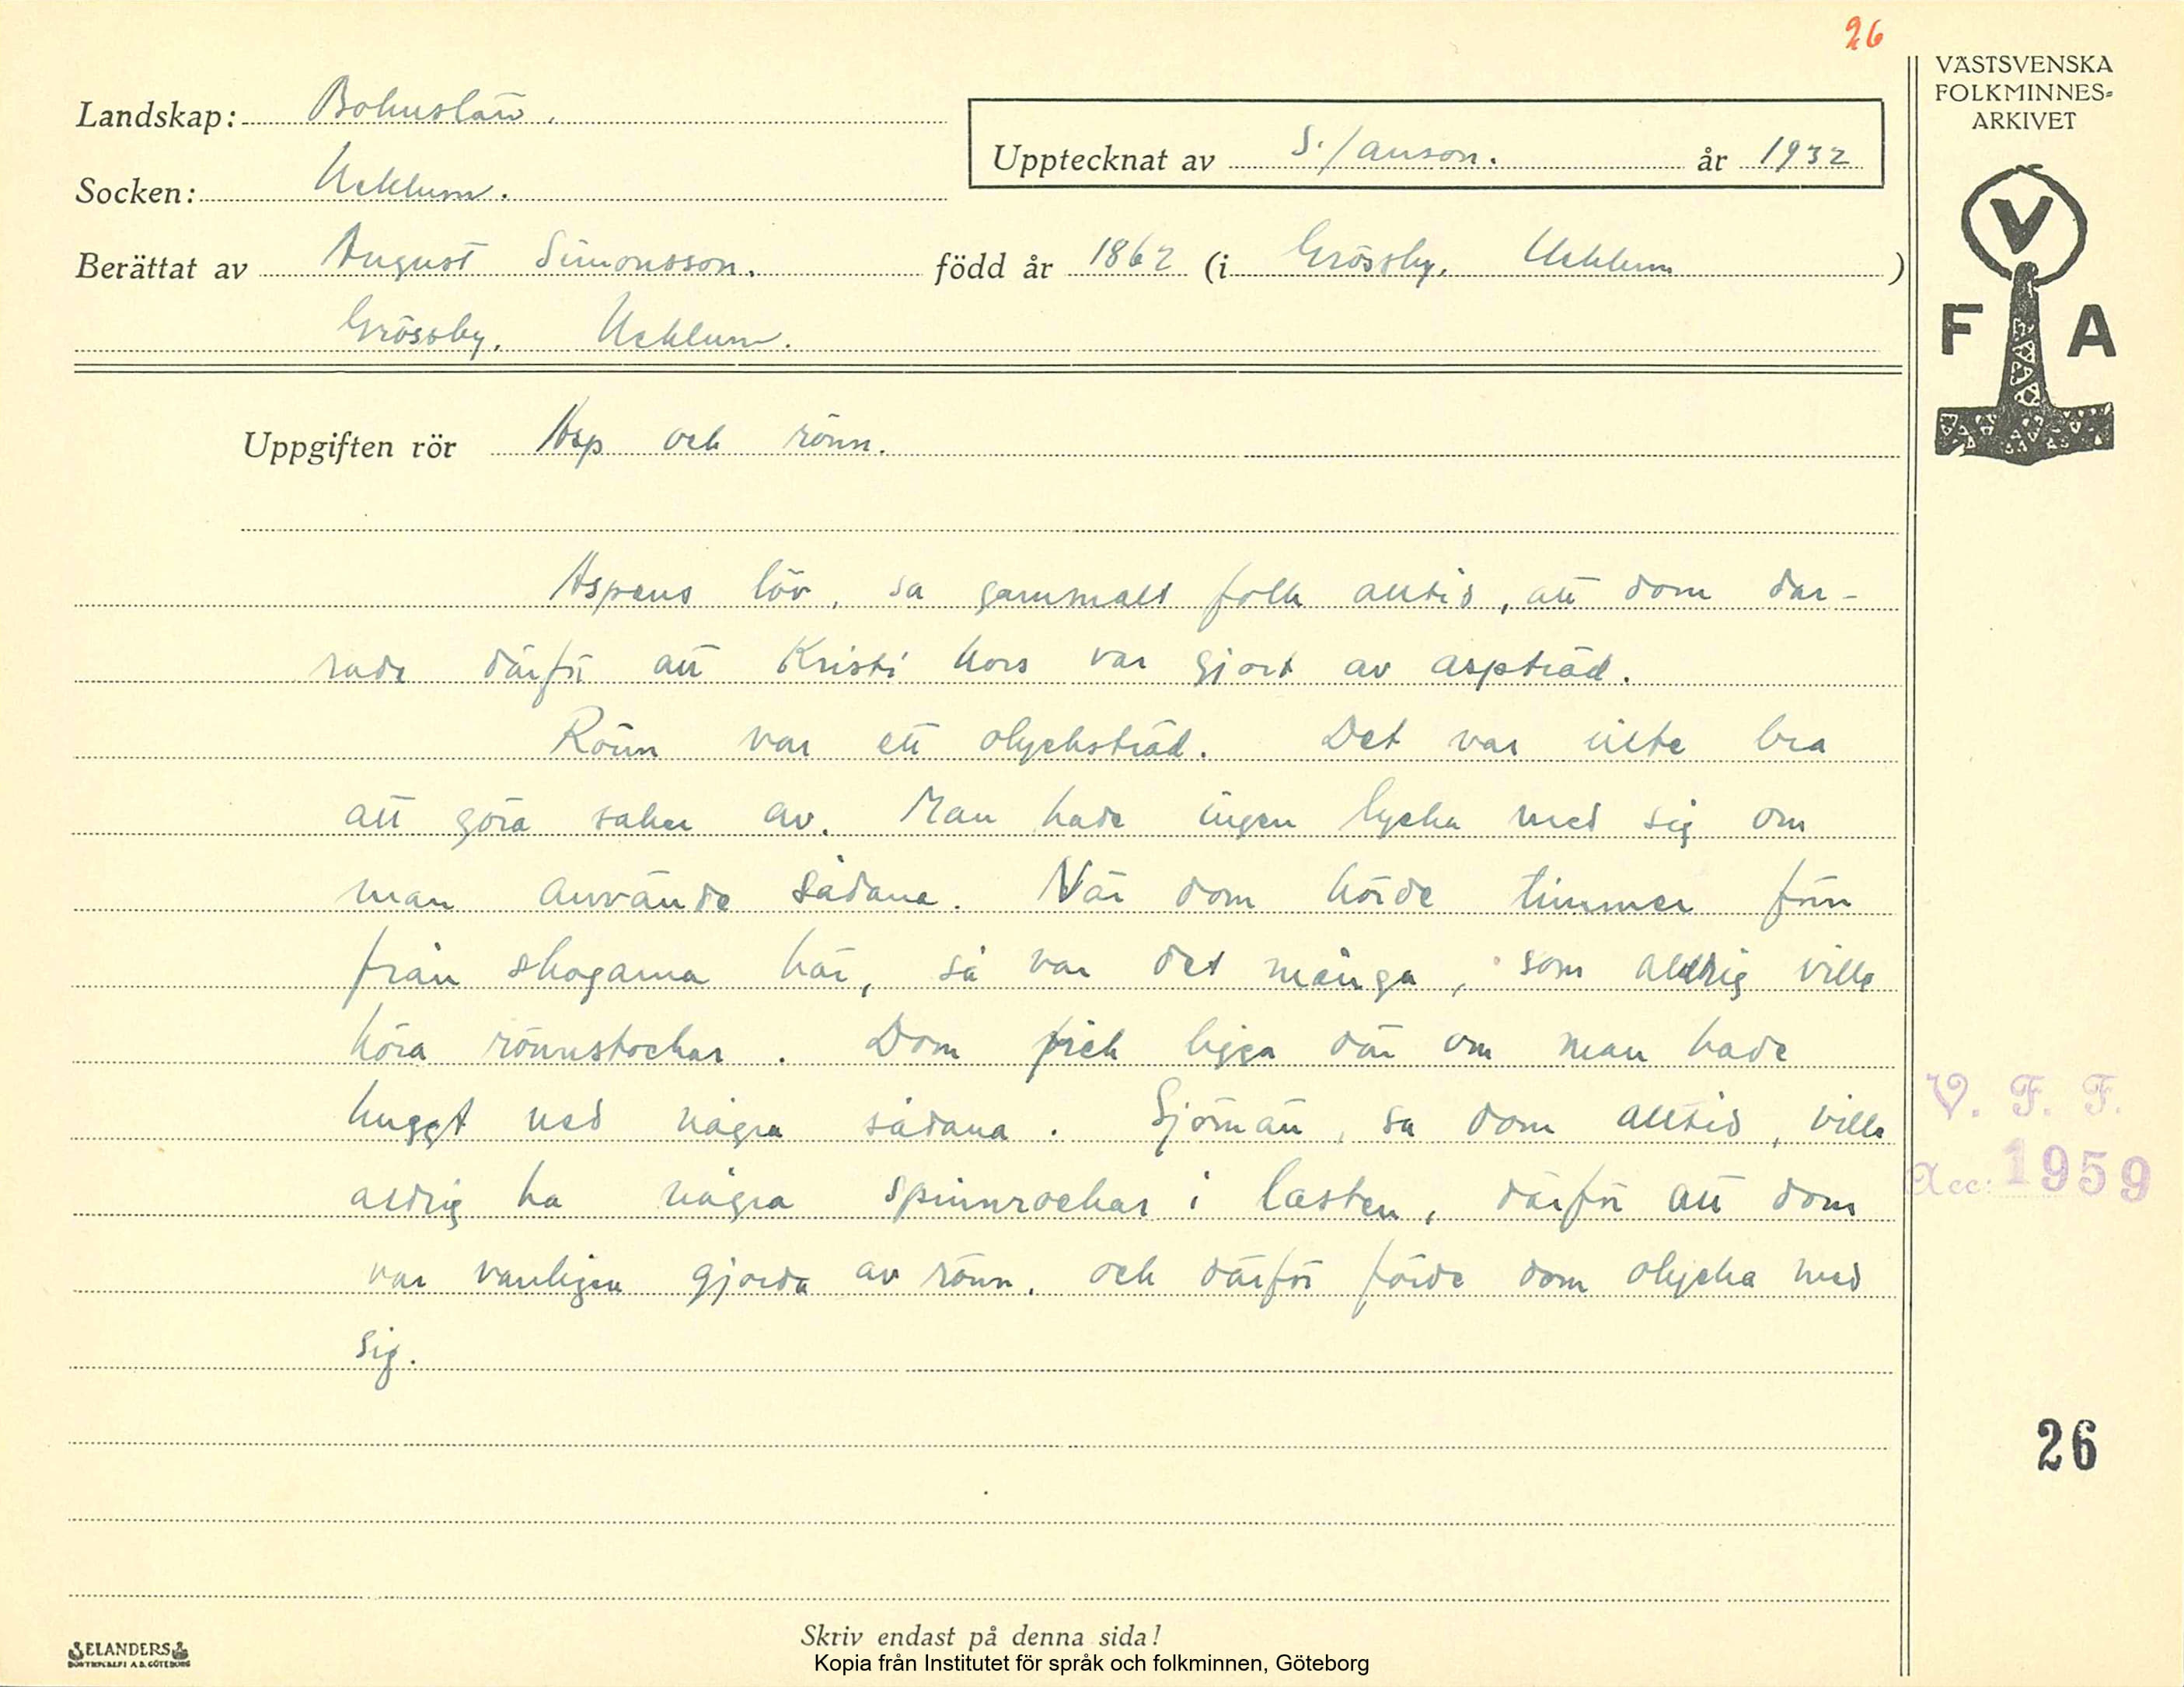 26
VÄSTSVENSKA
FOLKMINNES-
ARKIVET
Landskap: Bohuslän.
Upptecknat av S. Janson. år 1932
Socken: Ucklum.
Berättat av August Simonsson. född år 1862 (i Grössby, Ucklum)
Grössby, Ucklum.
V
F A
Uppgiften rör Asp och rönn.
Aspens löv, sa gammalt folk alltid, att dom dar-
rade därför att Kristi kors var gjort av aspträd.
Rönn var ett olycksträd. Det var inte bra
att göra saker av. Man hade ingen lycka med sig om
man använde sådana. När dom körde timmer från
från skogarna här, så var det många, som aldrig ville
köra rönnstockar. Dom fick ligga där om man hade
huggt ned några sådana. Sjömän, sa dom alltid, ville
aldrig ha några spinnrockar i lasten, därför att dom
var vanligen gjorda av rönn, och därför förde dom olycka med
sig.
V. F. F.
Acc: 1959
26
ELANDERS
BOKTRYCKERI A.B. GÖTEBORG
Skriv endast på denna sida!
Kopia från Institutet för språk och folkminnen, Göteborg